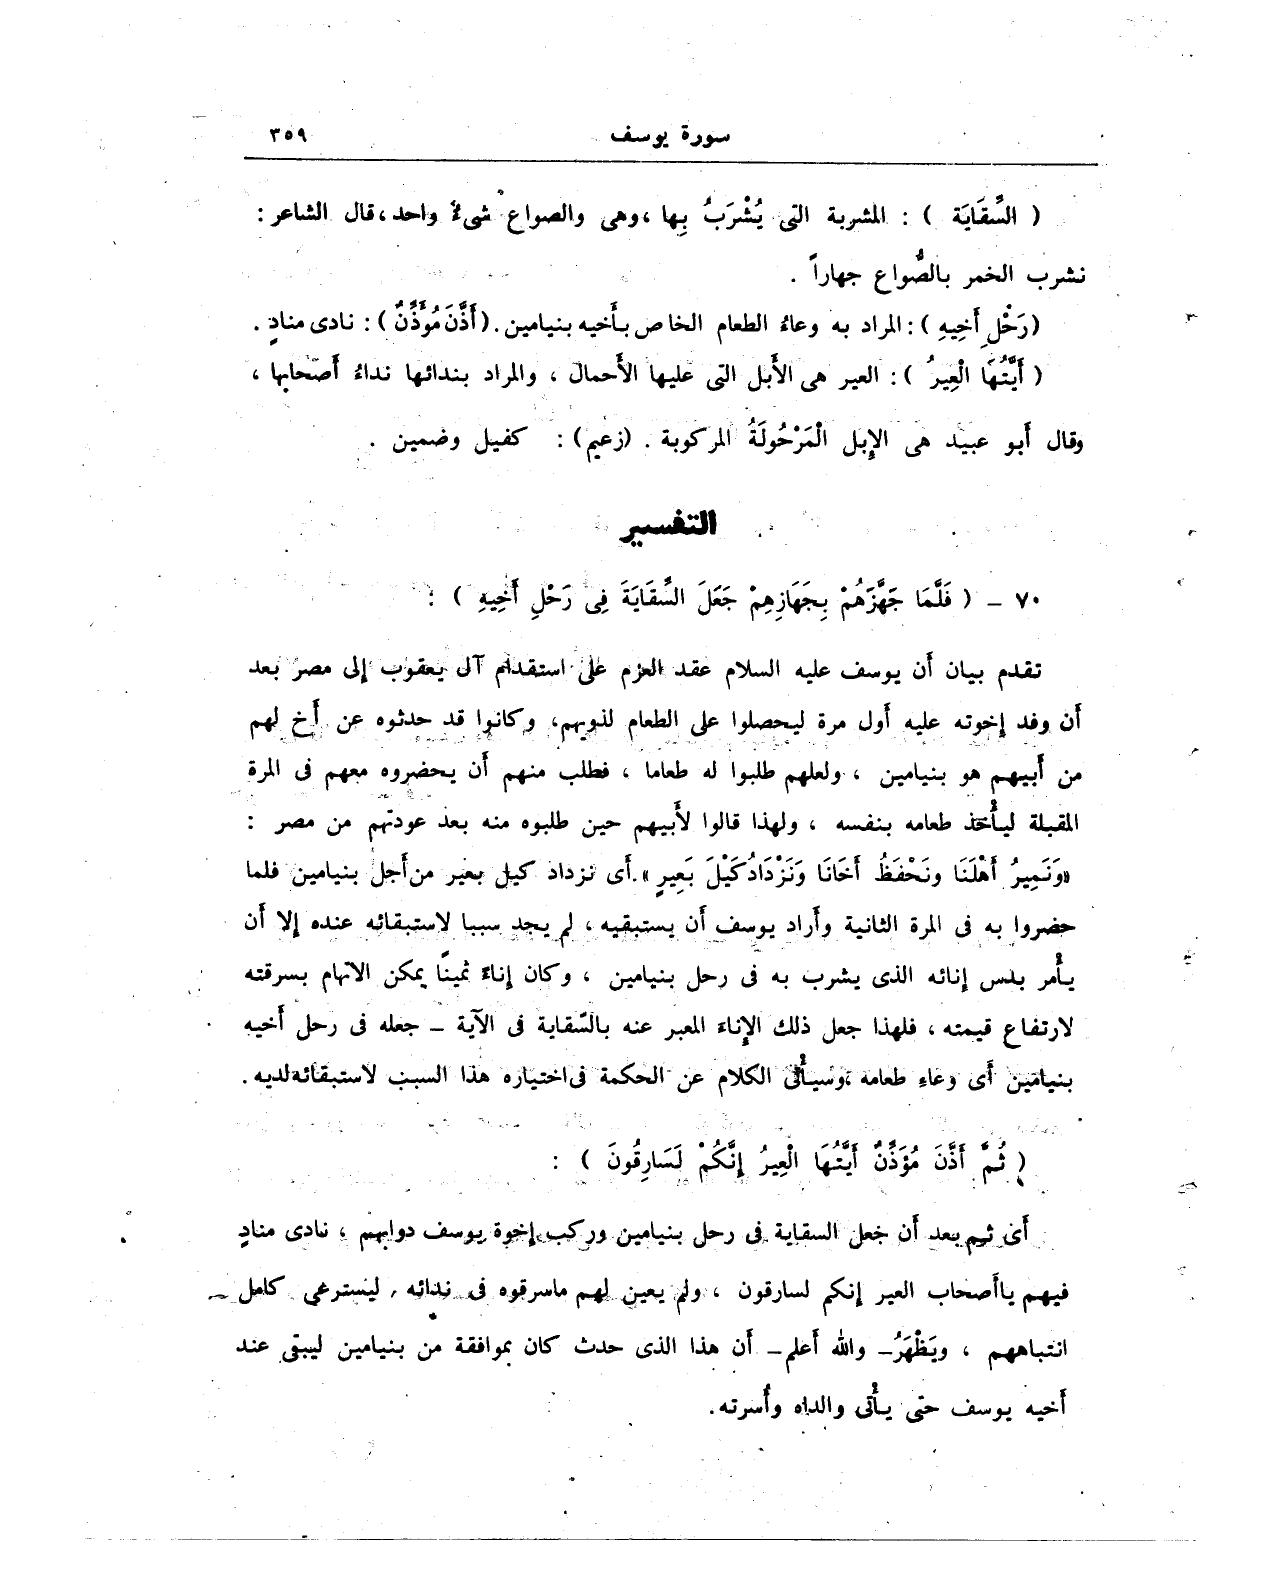 سورة يوسف ٣٥٩
( السِّقَايَة ) : المشربة التى يُشْرَبُ بِها ،وهى والصواع شىءٌ واحد،قال الشاعر :
نشرب الخمر بالصُّواع جهاراً .
(رَحْلِ أَخِيهِ ) : المراد به وعاءُ الطعام الخاص بأَخيه بنيامين . (أَذَّنَ مُؤَذِّنٌ ) : نادى منادٍ .
( أَيَّتُهَا الْعِيرُ ) : العير هى الأَبل التى عليها الأَحمال ، والمراد بندائها نداءُ أَصحابها ،
وقال أَبو عبيد هى الإِبل الْمَرْحُولَةُ المركوبة . (زعيم) : كفيل وضمين .
التفسير
٧٠ – ( فَلَمَّا جَهَّزَهُمْ بِجَهَازِهِمْ جَعَلَ السِّقَايَةَ فِى رَحْلِ أَخِيهِ ) :
تقدم بيان أَن يوسف عليه السلام عقد العزم على استقدام آل يعقوب إلى مصر بعد
أَن وفد إخوته عليه أَول مرة ليحصلوا على الطعام لذويهم، وكانوا قد حدثوه عن أَخ لهم
من أَبيهم هو بنيامين ، ولعلهم طلبوا له طعاما ، فطلب منهم أَن يحضروه معهم فى المرة
المقبلة ليأْخذ طعامه بنفسه ، ولهذا قالوا لأَبيهم حين طلبوه منه بعد عودتهم من مصر :
«وَنَمِيرُ أَهْلَنَا ونَحْفَظُ أَخَانَا وَنَزْدَادُ كَيْلَ بَعِيرٍ» .أَى نزداد كيل بعير من أَجل بنيامين فلما
حضروا به فى المرة الثانية وأَراد يوسف أَن يستبقيه ، لم يجد سببا لاستبقائه عنده إلا أَن
يأْمر بدس إنائه الذى يشرب به فى رحل بنيامين ، وكان إناءً ثمينًا يمكن الاتهام بسرقته
لارتفاع قيمته ، فلهذا جعل ذلك الإِناء المعبر عنه بالسِّقاية فى الآية – جعله فى رحل أَخيه
بنيامين أَى وعاءِ طعامه ،وسيأْتى الكلام عن الحكمة فى اختياره هذا السبب لاستبقائه لديه .
( ثُمَّ أَذَّنَ مُؤَذِّنٌ أَيَّتُهَا الْعِيرُ إِنَّكُمْ لَسَارِقُونَ ) :
أَى ثم بعد أَن جعل السقاية فى رحل بنيامين وركب إخوة يوسف دوابهم ، نادى منادٍ
فيهم ياأَصحاب العير إنكم لسارقون ، ولم يعين لهم ماسرقوه فى ندائه , ليسترعى كامل
انتباههم ، ويَظْهَرُ – والله أَعلم – أَن هذا الذى حدث كان بموافقة من بنيامين ليبقى عند
أَخيه يوسف حتى يأْتى والداه وأُسرته .